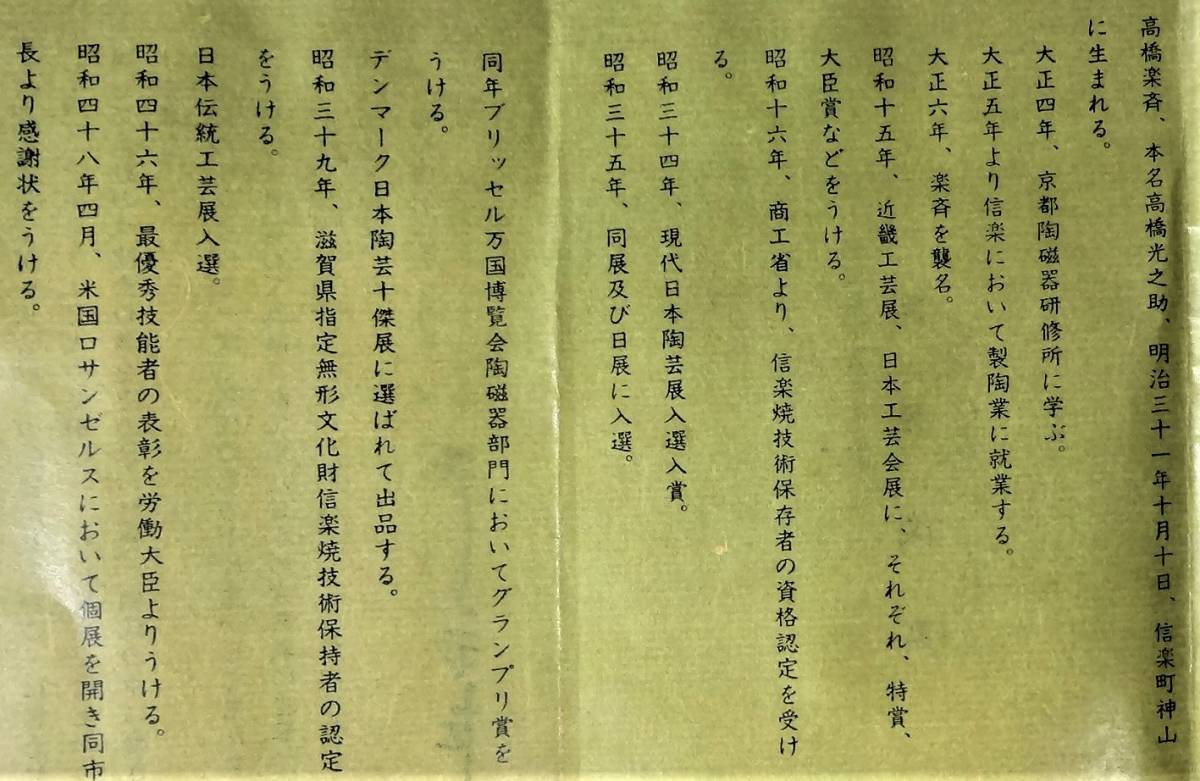 高橋楽斉、本名高橋光之助、明治三十一年十月十日、信楽町神山
に生まれる。
大正四年、京都陶磁器研修所に学ぶ。
大正五年より信楽において製陶業に就業する。
大正六年、楽斉を襲名。
昭和十五年、近畿工芸展、日本工芸会展に、それぞれ、特賞、
大臣賞などをうける。
昭和十六年、商工省より、信楽焼技術保存者の資格認定を受け
る。
昭和三十四年、現代日本陶芸展入選入賞。
昭和三十五年、同展及び日展に入選。
同年ブリッセル万国博覧会陶磁器部門においてグランプリ賞を
うける。
デンマーク日本陶芸十傑展に選ばれて出品する。
昭和三十九年、滋賀県指定無形文化財信楽焼技術保持者の認定
をうける。
日本伝統工芸展入選。
昭和四十六年、最優秀技能者の表彰を労働大臣よりうける。
昭和四十八年四月、米国ロサンゼルスにおいて個展を開き同市
長より感謝状をうける。